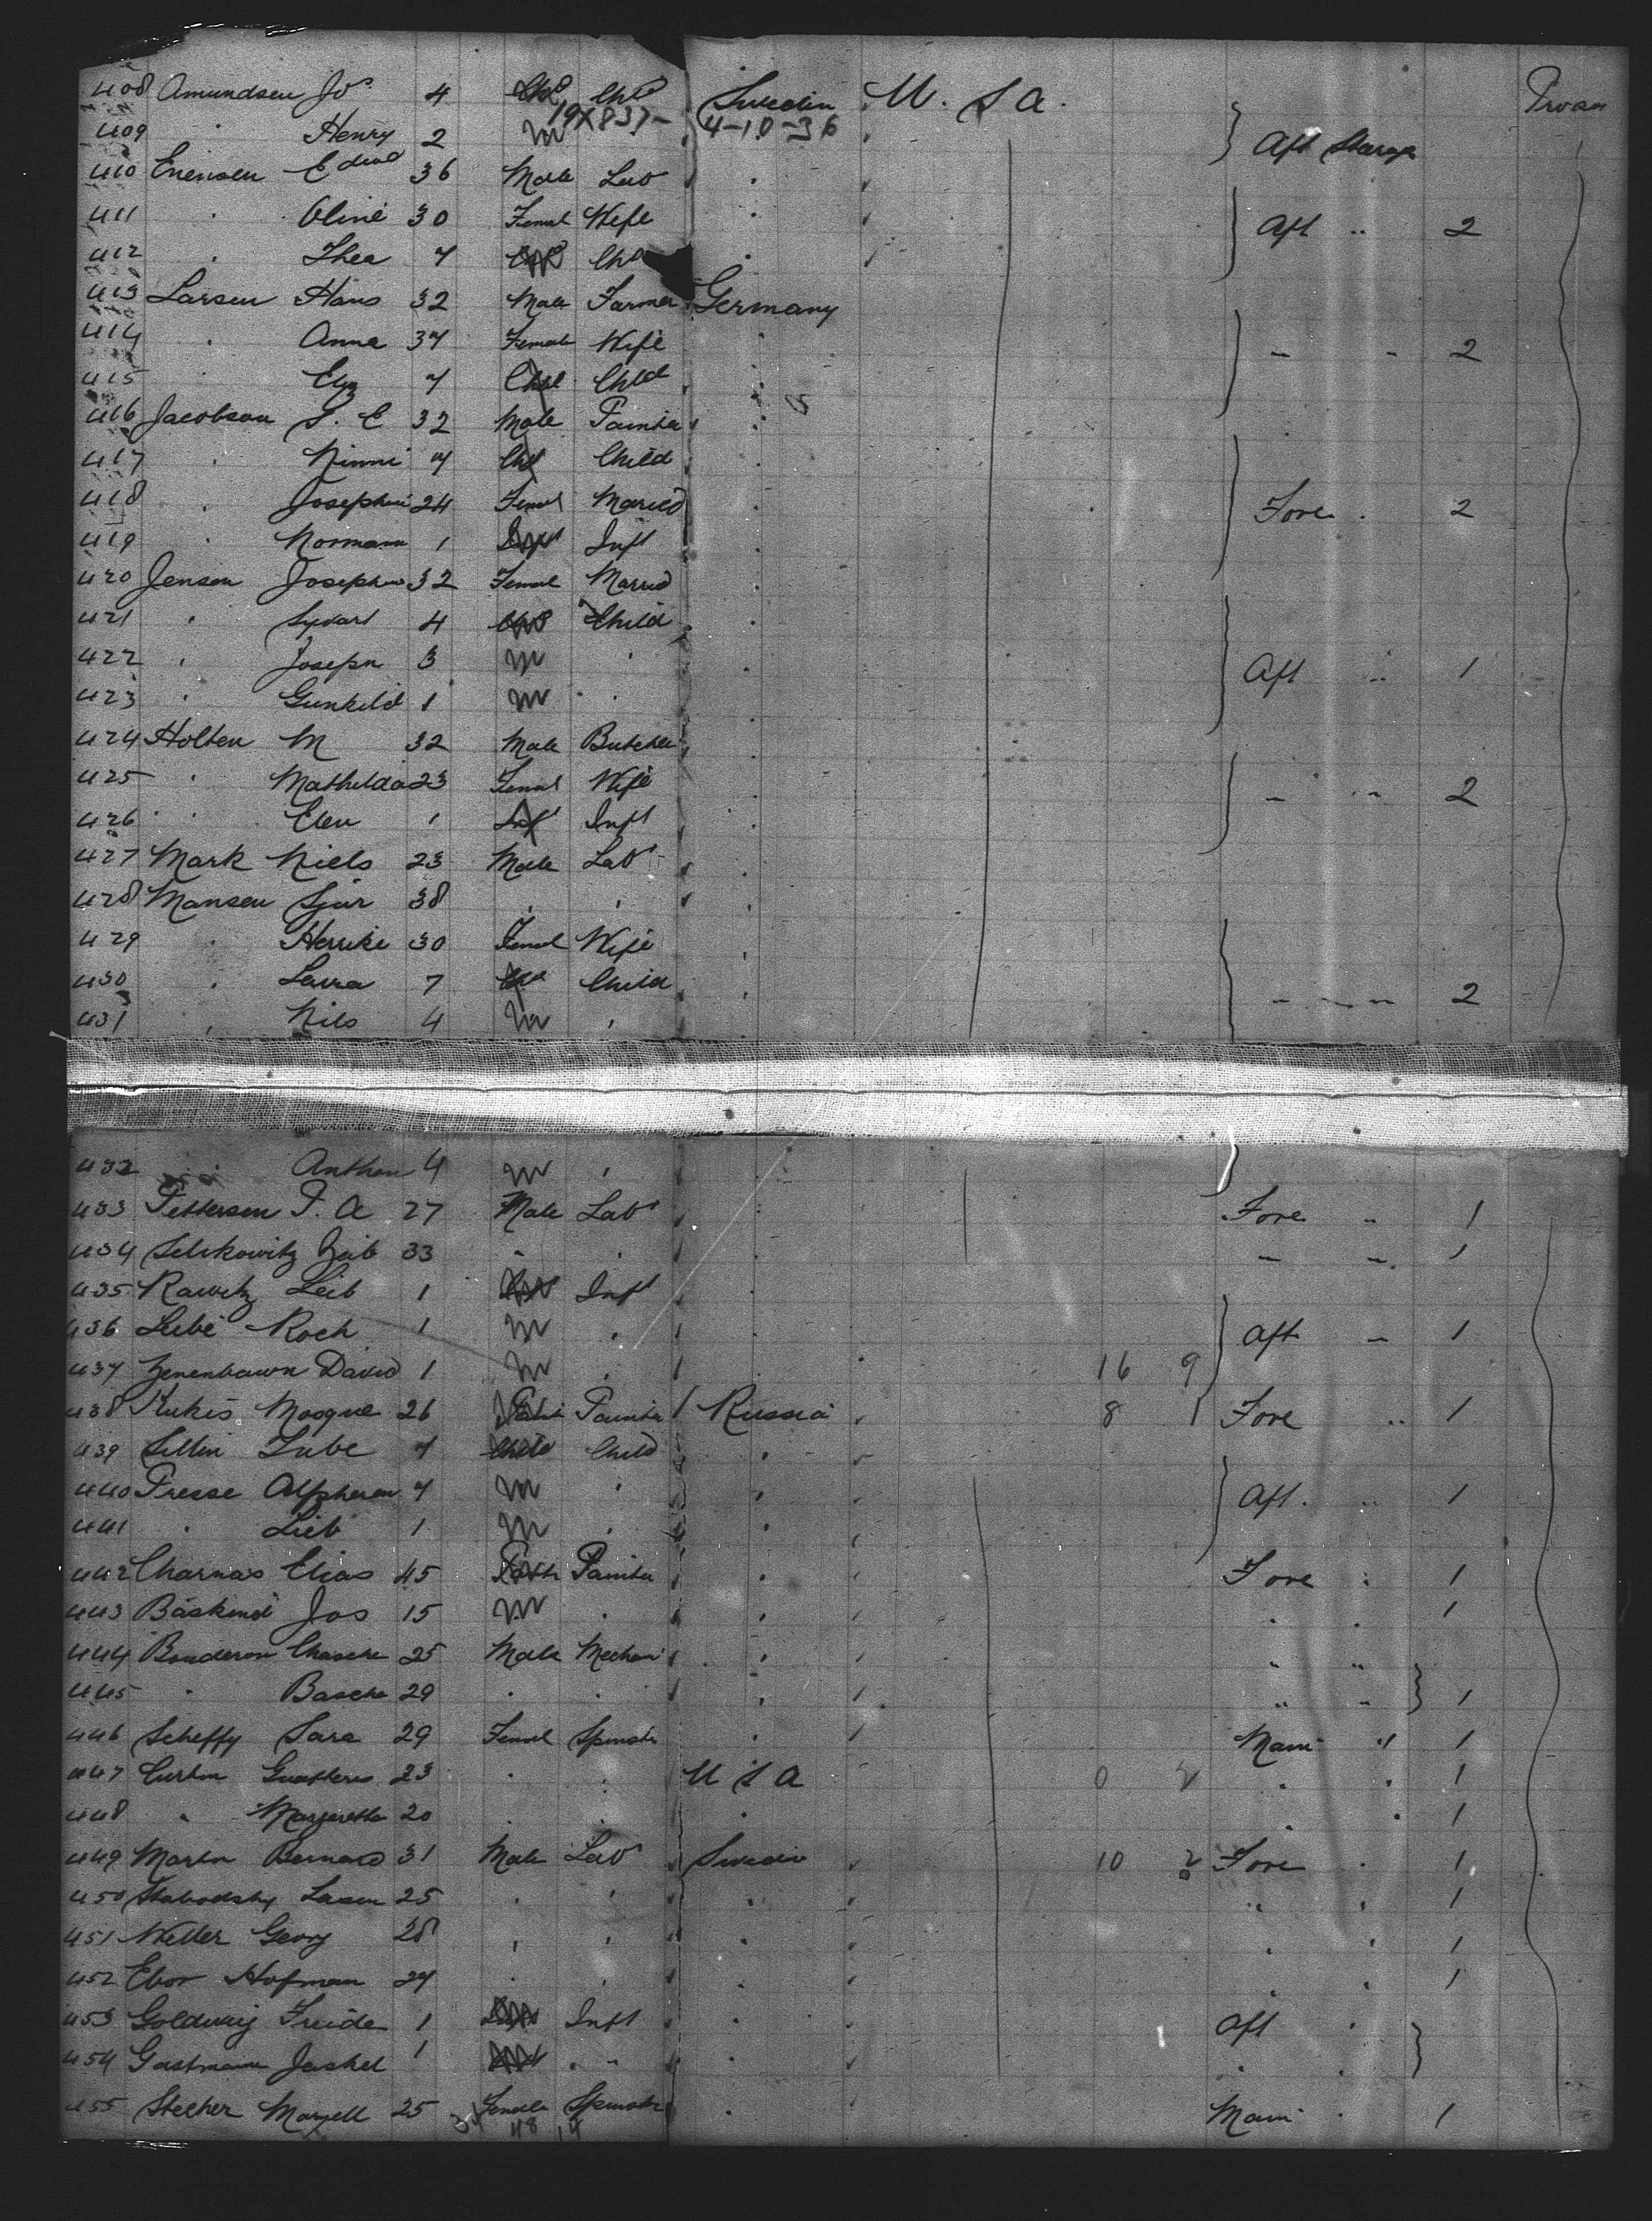 408 Amundsen Jo 4 Chd Sweden U. S A.
19X837- 4-10-36
409 " Henry 2 m Aft Steerage
410 Enensen Edvd 36 Male Lab
411 " Oline 30 Femal Wife Aft " 2
412 " Thea 7 Chd
413 Larsen Hans 32 Male Farmer Germany
414 " Anna 37 Female Wife - - 2
415 " Eliz 7 Child Child
416 Jacobson S. C 32 Male Painter
417 " Ninni 7 Chd Child
418 " Josephine 24 Femal Married Fore " 2
419 " Normann 1 Inft Inft
420 Jensen Josephine 32 Femal Married
421 " Sydart 4 Chd Child
422 " Joseph 3 m " Aft " 1
423 " Gunhild 1 m "
424 Holten M 32 Male Butcher
425 " Mathilda 23 Femal Wife - " 2
426 " Elen 1 Inft Inft
427 Mark Niels 23 Male Lab
428 Mansen Sjur 38 " "
429 " Henrike 30 Femal Wife
430 " Laura 7 Chd Child - - - 2
431 " Nils 4 m "
432 " Anthon 4 m "
433 Pettersen P. A 27 Male Lab Fore " 1
434 Selikowitz 33 " " - - 1
435 Rawitz Leib 1 Inft
436 Leibe Roch 1 m " Aft " 1
437 Zenenbawn David 1 m " 16 9
438 Kukis Mosque 26 Painter Russia 8 1 Fore " 1
439 Sellin Lube 7 Child Child
440 Presse 7 m " Aft. " 1
441 " Lieb 1 m "
442 Charnas Elias 45 Painter Fore " 1
443 Baskind Jos 15 m " " " 1
444 Bouderon Chasche 25 Male Mechani " "
445 " Basche 29 " " " " 1
446 Scheffy Sara 29 Femal Spinster Main " 1
447 Curtin 23 " " U S A 0 2 " " 1
448 " Margaretta 20 " " " 1
449 Martin Bernard 31 Male Lab Sweden 10 2 Fore " 1
450 25 " " " " 1
451 Weller Georg 28 " " " " 1
452 Ebor Hofman 27 " " " " 1
453 Goldweig Freide 1 Inft Aft "
454 Gastmann Jaskel 1 " " " "
455 Stecher 25 Female Spinster Main " 1
48 14